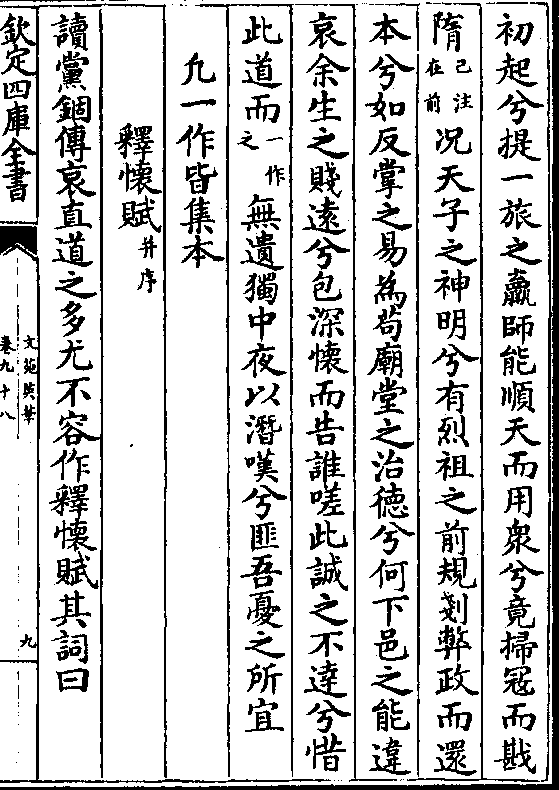 初起兮提一旅之羸師能順天而用衆兮竟掃冦而戡
隋已注在前况天子之神明兮有烈祖之前規剗弊政而還
本兮如反掌之易為苟廟堂之治德兮何下邑之能違
哀余生之賤遠兮包深懷而告誰嗟此誠之不達兮惜
此道而一作之無遺獨中夜以潛嘆兮匪吾憂之所宜
凡一作皆集本
釋懷賦并序
讀黨錮傳哀直道之多尤不容作釋懷賦其詞曰
欽定四庫全書
文苑英華
卷九十八
九